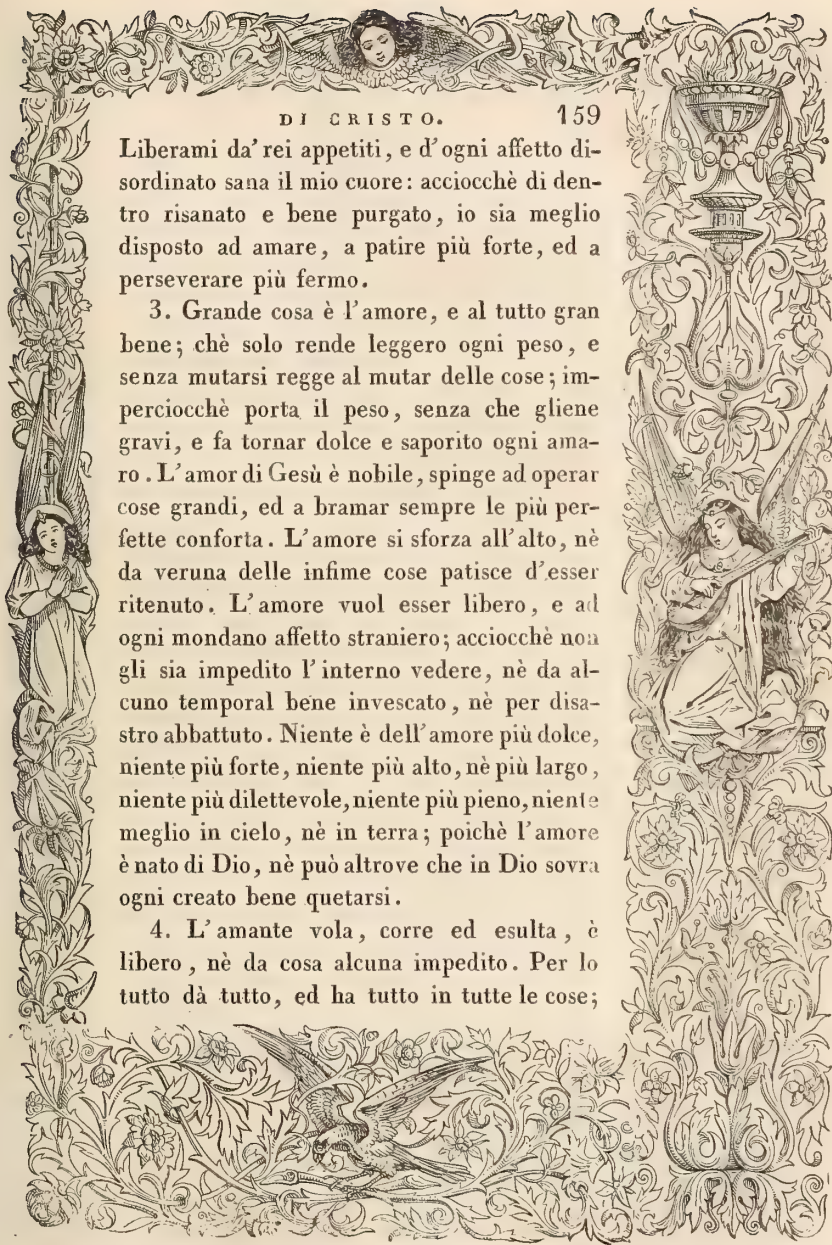 DI CRISTO. 159
Liberami da' rei appetiti, e d'ogni affetto di-
sordinato sana il mio cuore: acciocchè di den-
tro risanato e bene purgato, io sia meglio
disposto ad amare, a patire più forte, ed a
perseverare più fermo.
3. Grande cosa è l'amore, e al tutto gran
bene; chè solo rende leggero ogni peso, e
senza mutarsi regge al mutar delle cose; im-
perciocchè porta il peso, senza che gliene
gravi, e fa tornar dolce e saporito ogni ama-
ro. L'amor di Gesù è nobile, spinge ad operar
cose grandi, ed a bramar sempre le più per-
fette conforta. L'amore si sforza all'alto, nè
da veruna delle infime cose patisce d'esser
ritenuto. L'amore vuol esser libero, e ad
ogni mondano affetto straniero; acciocchè non
gli sia impedito l'interno vedere, nè da al-
cuno temporal bene invescato, nè per disa-
stro abbattuto. Niente è dell'amore più dolce,
niente più forte, niente più alto, nè più largo,
niente più dilettevole, niente più pieno, niente
meglio in cielo, nè in terra; poichè l'amore
è nato di Dio, nè può altrove che in Dio sovra
ogni creato bene quetarsi.
4. L'amante vola, corre ed esulta, è
libero, nè da cosa alcuna impedito. Per lo
tutto dà tutto, ed ha tutto in tutte le cose;